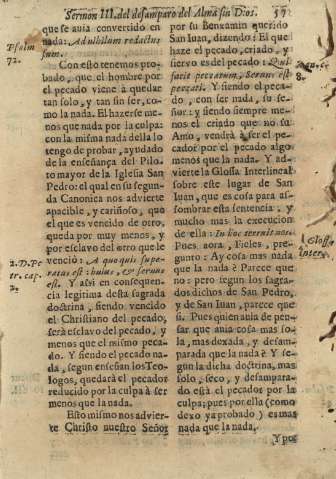 Sermon III. del desamparo del Alma sin Dios. 57
que se auia convertido en
nada: Ad nihilum redactus
sum.
Psalm
72.
Con esto tenemos pro-
bado, que el hombre por
el pecado viene à quedar
tan solo, y tan sin ser, co-
mo la nada. El hazerse me-
nos que nada por la culpa:
con la misma nada della lo
tengo de probar, ayudado
de la enseñança del Pilo-
to mayor de la Iglesia San
Pedro: el qual en su segun-
da Canonica nos advierte
apacible, y cariñoso, que
el que es vencido de otro,
queda por muy menos, y
por esclavo del otro que le
venciò: A quo quis supe-
ratus est: huius, & seruus
est. Y assi en consequen-
2. D. Pe
ter. cap.
2.
cia legitima desta sagrada
doctrina, siendo vencido
el Christiano del pecado,
serà esclavo del pecado, y
menos que el mismo peca-
do. Y siendo el pecado na-
da, segun enseñan los Teo-
logos, quedarà el pecador
reducido por la culpa à ser
menos que la nada.
Esto mismo nos advier-
te Christo nuestro Señor
por su Benjamin querido
San Iuan, dizendo: El que
haze el pecado, criado, y
siervo es del pecado: Qui
facit peccatum, Seruus est
peccati. Y siendo el peca-
8.
do, con ser nada, su se-
ñor: y siendo siempre me-
nos el criado que no su
Amo, vendrà à ser el pe-
cador por el pecado algo
menos que la nada. Y ad-
vierte la Glossa Interlineal
sobre este lugar de San
Iuan, que es cosa para as-
sombrar esta sentencia, y
mucho mas la execucion
de ella: In hoc terret nos.
Glossa
Interl.
Pues aora, Fieles, pre-
gunto: Ay cosa mas nada
que la nada? Parece que
no: pero segun los sagra-
dos dichos de San Pedro,
y de San Iuan, parece que
si. Pues quien auia de pen-
sar que auia cosa mas so-
la, mas dexada, y desam-
parada que la nada? Y se-
gun la dicha doctrina, mas
solo, seco, y desampara-
do està el pecador por la
culpa; pues por ella (como
dexo ya probado) es mas
nada que la nada.
Y por